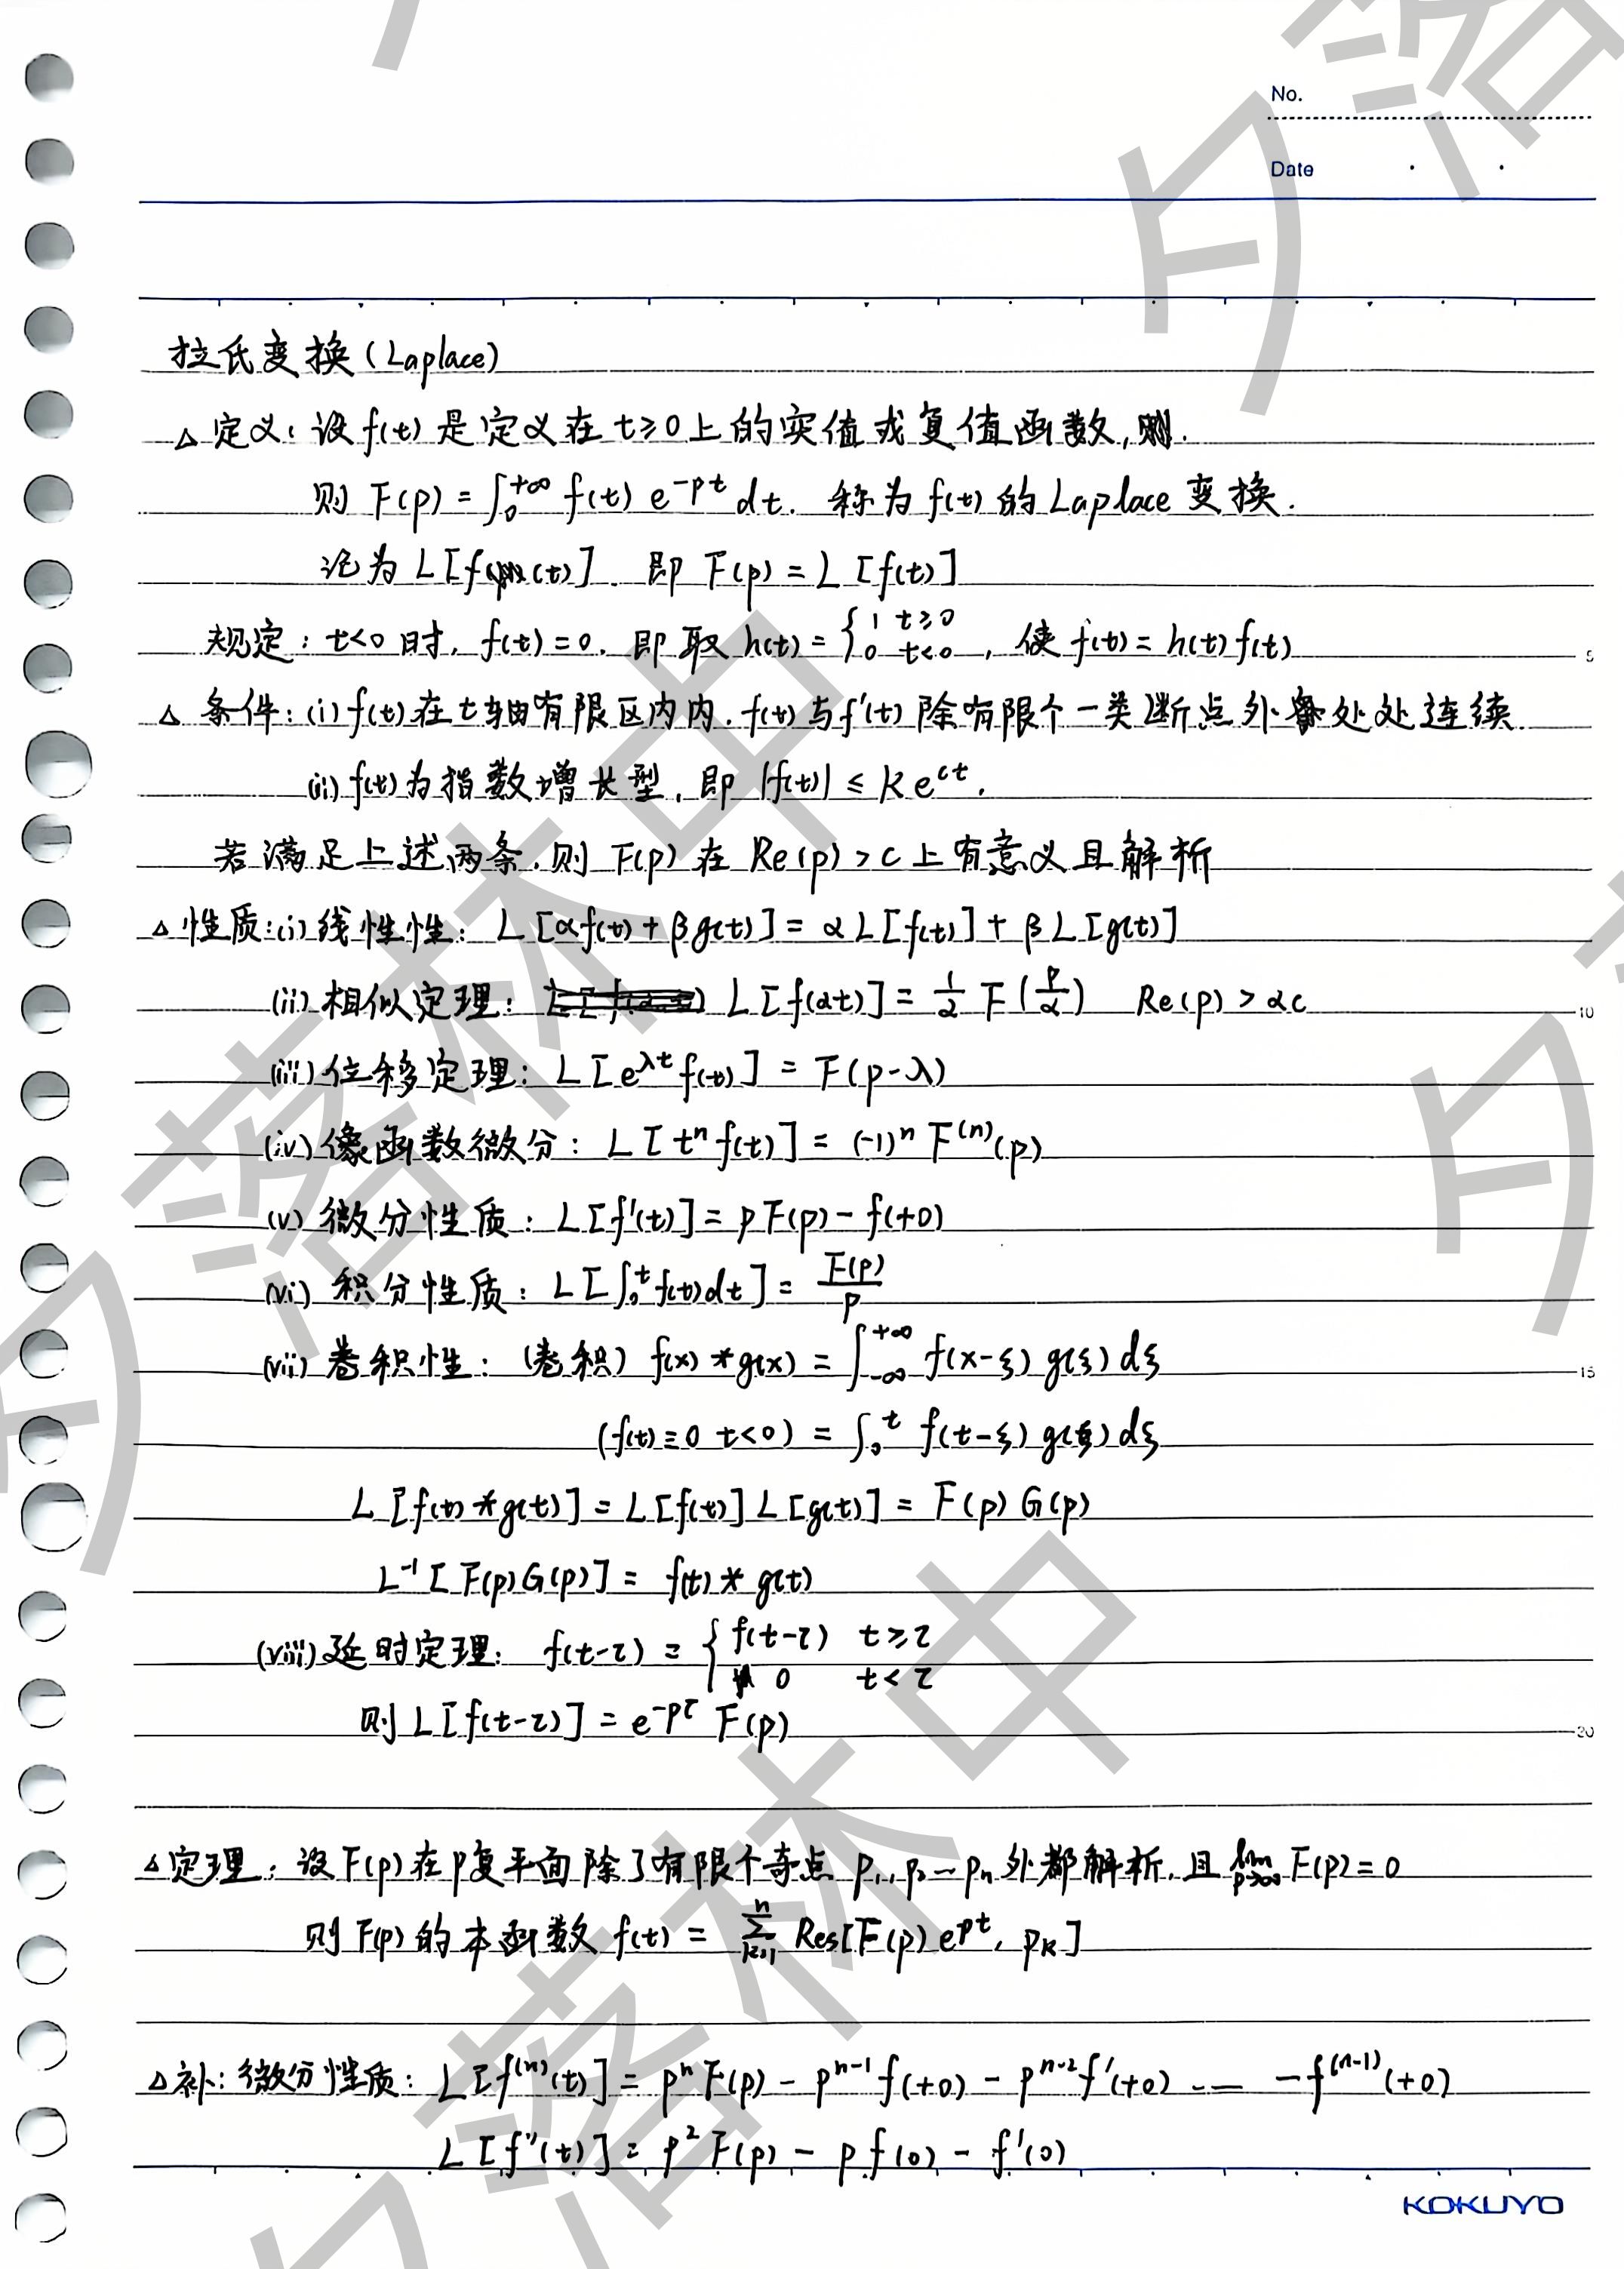 No.
Date
拉氏变换(Laplace)
△ 定义:设 f(t) 是定义在 t≥0 上的实值或复值函数,
则 F(p) = ∫₀^{+∞} f(t) e^{-pt} dt. 称为 f(t) 的 Laplace 变换.
记为 L[f(t)]. 即 F(p) = L[f(t)]
规定:t<0 时, f(t)=0. 即取 h(t) = { 1 t≥0 ; 0 t<0 , 使 f(t) = h(t) f(t)
5
△ 条件:(i) f(t) 在 t 轴有限区内内. f(t) 与 f'(t) 除有限个一类断点外处处连续.
(ii) f(t) 为指数增长型, 即 |f(t)| ≤ K e^{ct}.
若满足上述两条, 则 F(p) 在 Re(p) > c 上有意义且解析
△ 性质:(i) 线性性: L[αf(t) + βg(t)] = αL[f(t)] + βL[g(t)]
(ii) 相似定理: L[f(αt)] = 1/2 F(p/α) Re(p) > αc
10
(iii) 位移定理: L[e^{λt} f(t)] = F(p-λ)
(iv) 像函数微分: L[t^n f(t)] = (-1)^n F^{(n)}(p)
(v) 微分性质: L[f'(t)] = pF(p) - f(+0)
(vi) 积分性质: L[∫₀^t f(t)dt] = F(p)/p
(vii) 卷积性: (卷积) f(x) * g(x) = ∫_{-∞}^{+∞} f(x-ξ) g(ξ) dξ
15
(f(t)≡0 t<0) = ∫₀^t f(t-ξ) g(ξ) dξ
L[f(t) * g(t)] = L[f(t)] L[g(t)] = F(p) G(p)
L^{-1}[F(p)G(p)] = f(t) * g(t)
(viii) 延时定理: f(t-τ) = { f(t-τ) t≥τ ; 0 t<τ
则 L[f(t-τ)] = e^{-pτ} F(p)
20
△ 定理:设 F(p) 在 p 复平面除了有限个奇点 p₁, p₂ … pₙ 外都解析, 且 lim_{p→∞} F(p) = 0
则 F(p) 的本函数 f(t) = Σ_{k=1}^{n} Res[F(p) e^{pt}, p_k]
△ 补:微分性质: L[f^{(n)}(t)] = p^n F(p) - p^{n-1} f(+0) - p^{n-2} f'(+0) … - f^{(n-1)}(+0)
L[f''(t)] = p² F(p) - p f(0) - f'(0)
KOKUYO
夕落林中
夕落林中